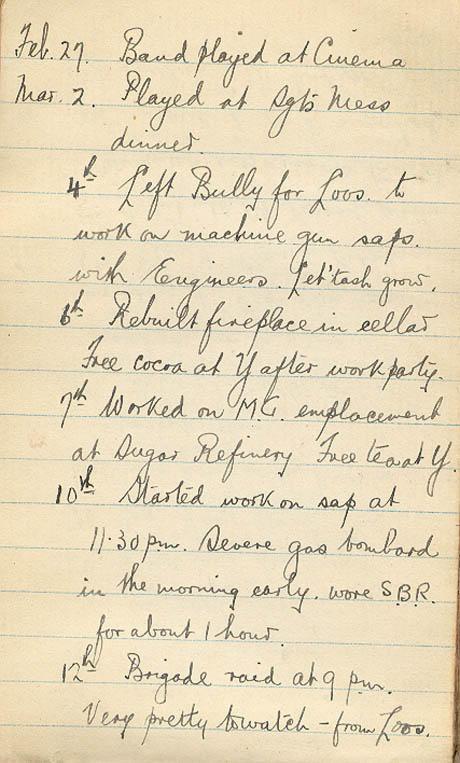 Feb. 27. Band played at Cinema
Mar. 2. Played at Sgts Mess
dinner.
4th Left Bully for Loos. to
work on machine gun saps.
with Engineers. Let 'tash grow.
6th Rebuilt fireplace in cellar
Free cocoa at Y after work party.
7th Worked on M.G. emplacement
at Sugar Refinery Free tea at Y.
10th Started work on sap at
11.30 p.m. Severe gas bombard
in the morning early. wore S.B.R.
for about 1 hour.
12th Brigade raid at 9 p.m.
Very pretty to watch - from Loos.